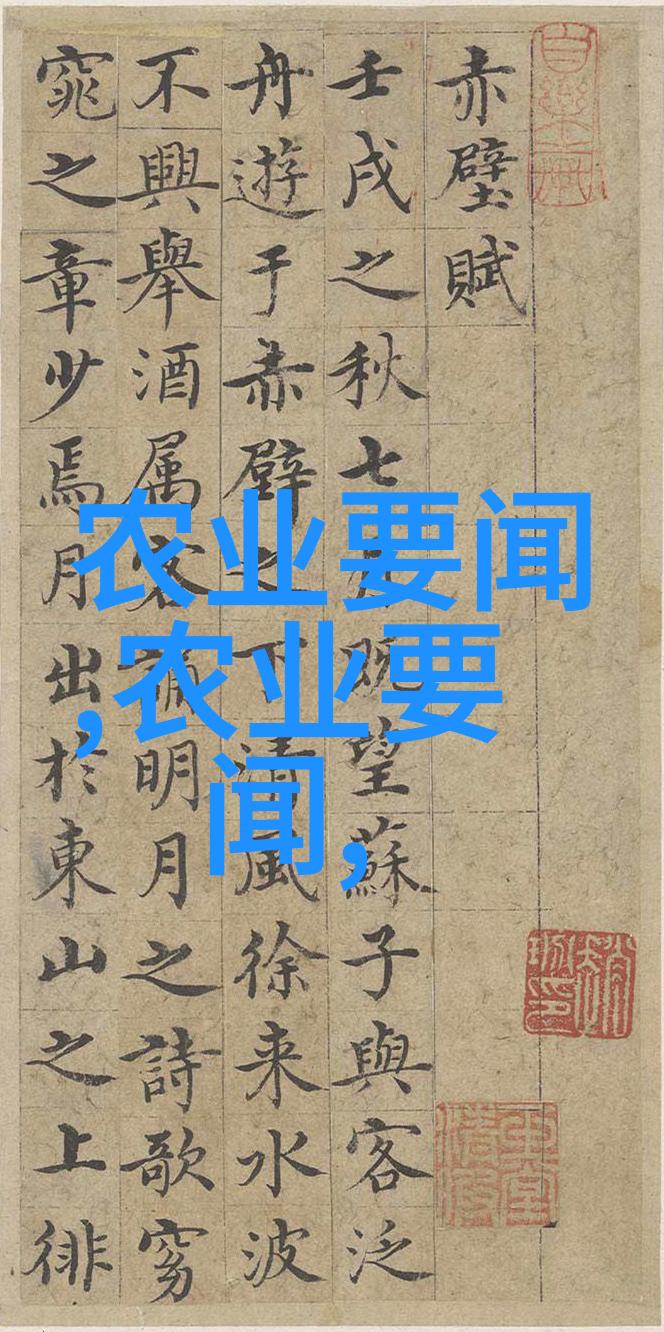 赤壁賦
壬戌之秋七月既望蘇子與客泛
舟遊于赤壁之下清風徐来水波
不興舉酒属客誦明月之詩歌窈
窕之章少焉月出於東山之上徘
农业要闻
,农业要
闻,